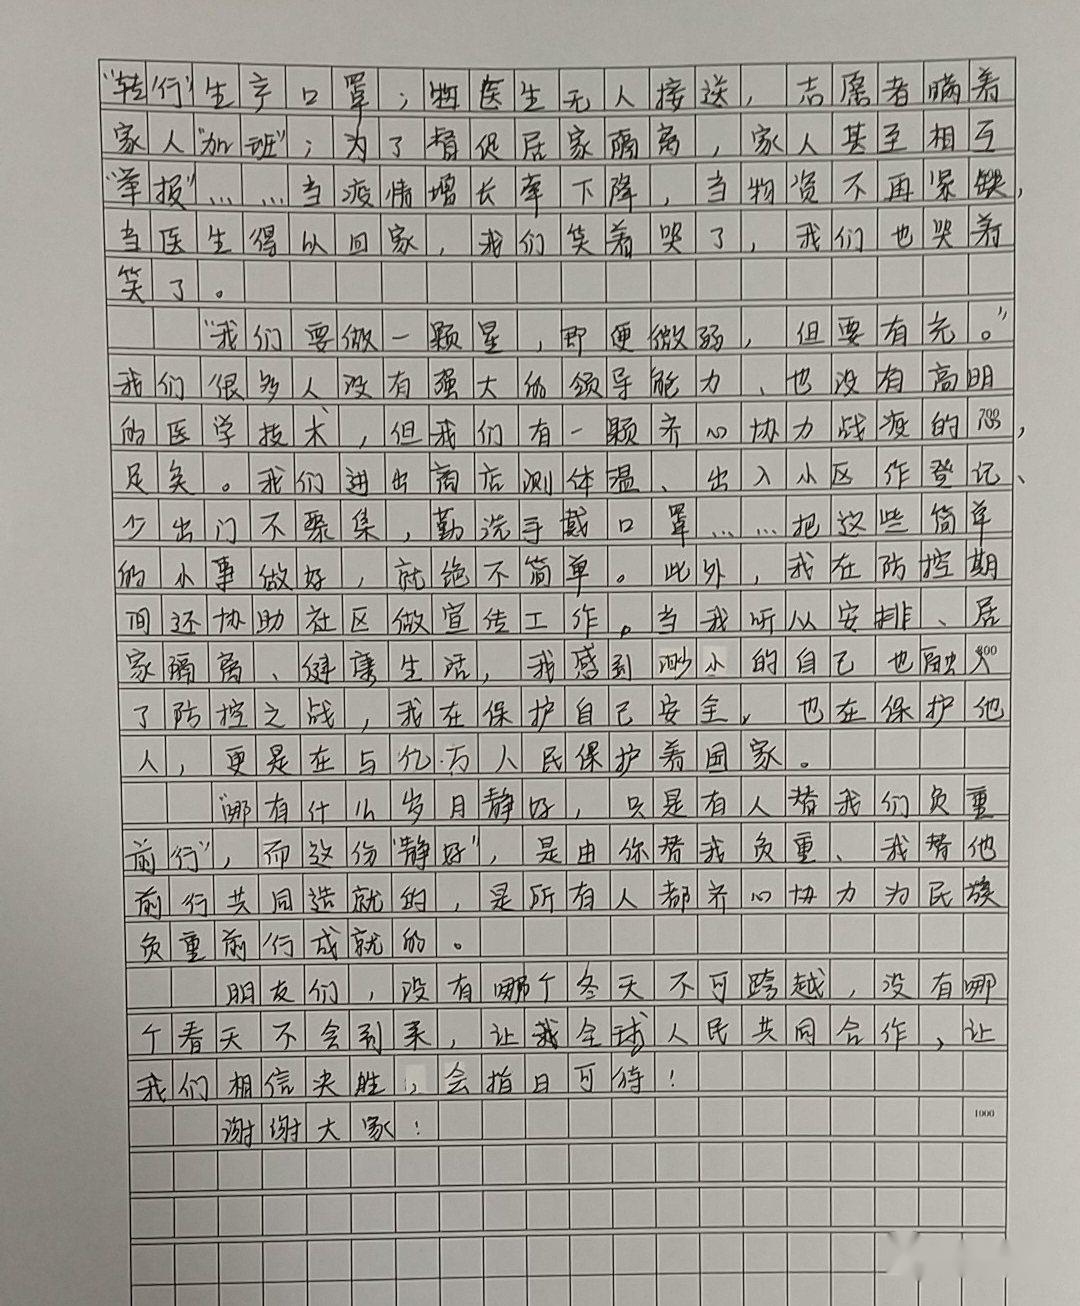 “转行”生产口罩；为医生无人接送，志愿者瞒着
家人“加班”；为了督促居家隔离，家人甚至相互
“举报”……当疫情增长率下降，当物资不再紧缺，
当医生得以回家，我们笑着哭了，我们也哭着
笑了。
“我们要做一颗星，即便微弱，但要有光。”
我们很多人没有强大的领导能力、也没有高明
的医学技术，但我们有一颗齐心协力战疫的心，
700
足矣。我们进出商店测体温、出入小区作登记、
少出门不聚集，勤洗手戴口罩……把这些简单
的小事做好，就绝不简单。此外，我在防控期
间还协助社区做宣传工作。当我听从安排、居
家隔离、健康生活，我感到渺小的自己也融入
800
了防控之战，我在保护自己安全，也在保护他
人，更是在与亿万人民保护着国家。
“哪有什么岁月静好，只是有人替我们负重
前行”，而这份“静好”，是由你替我负重、我替他
前行共同造就的，是所有人都齐心协力为民族
负重前行成就的。
朋友们，没有哪个冬天不可跨越，没有哪
个春天不会到来，让我全球人民共同合作，让
我们相信决胜，会指日可待！
谢谢大家！
1000